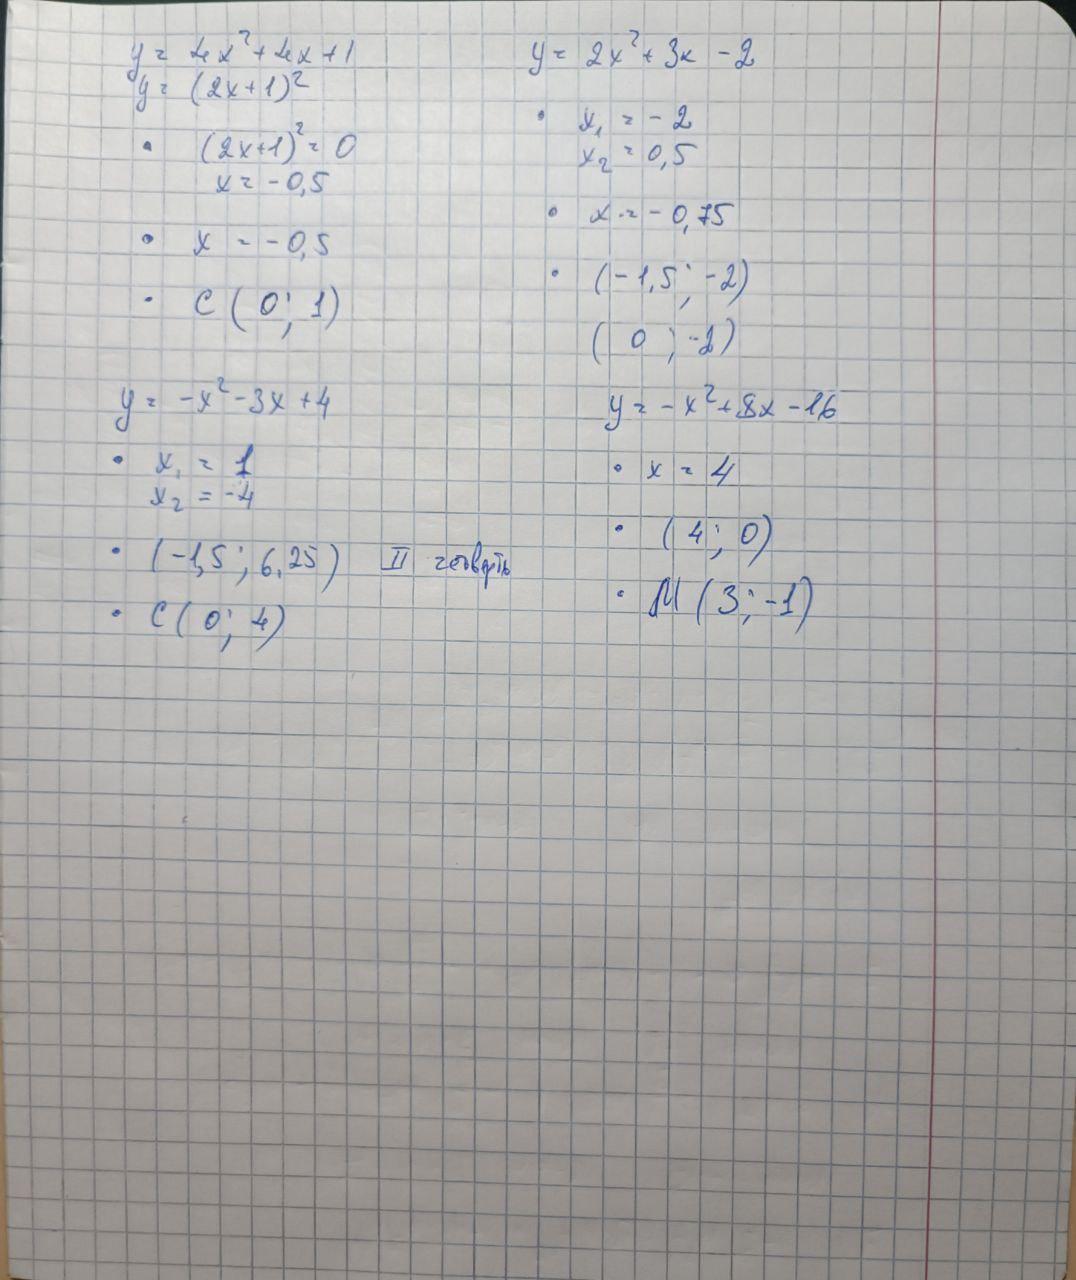 y = 4x² + 4x + 1
y = (2x+1)²
• (2x+1)² = 0
x = -0,5
• x = -0,5
• C (0; 1)
y = 2x² + 3x - 2
• x₁ = -2
x₂ = 0,5
• x = -0,75
• (-1,5; -2)
(0; -2)
y = -x² - 3x + 4
• x₁ = 1
x₂ = -4
• (-1,5; 6,25) II четверть
• C (0; 4)
y = -x² + 8x - 16
• x = 4
• (4; 0)
• M (3; -1)